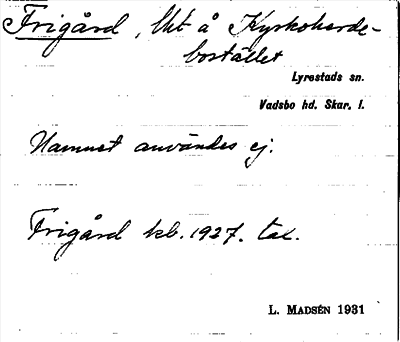 Frigård, lht å Kyrkoherde-
bostället
Lyrestads sn.
Vadsbo hd. Skar. l.
Namnet användes ej.
Frigård kb. 1927. tax.
L. MADSÉN 1931